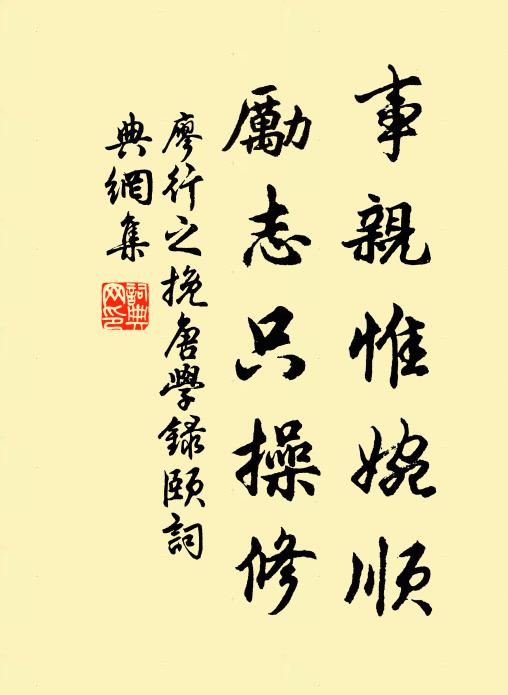 事親惟婉順
勵志只操修
廖行之挽唐學録頤詞
典網集
詞典网印